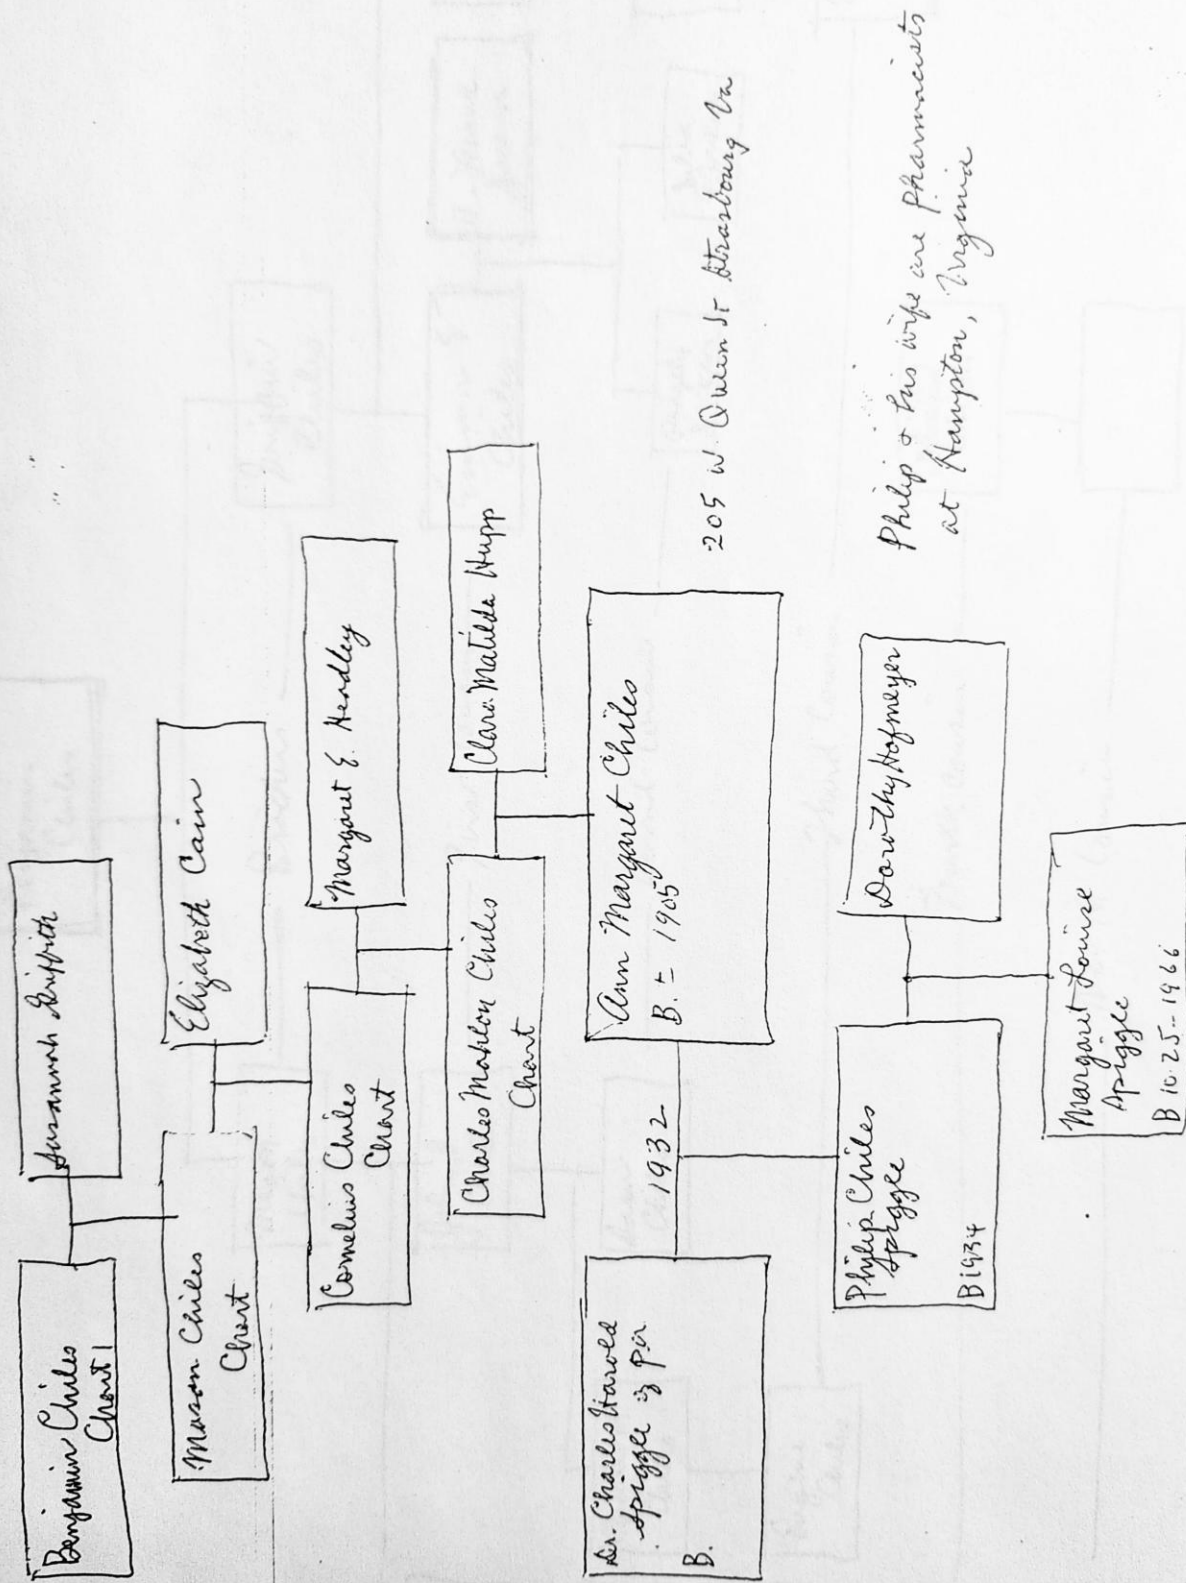 Benjamin Chiles
Chart 1
Susannah Griffith
Mason Chiles
Chart
Elizabeth Cain
Cornelius Chiles
Chart
Margaret E. Hendley
Charles Mahlon Chiles
Chart
Clara Matilda Hupp
Dr. Charles Harold
Spiggle
B.
1932
Ann Margaret Chiles
B. ± 1905
205 W Queen St Strasbourg Va
Philip Chiles
Spiggle
B 1934
Dorothy Hofmeyer
Philip & his wife are Pharmacists
at Hampton, Virginia
Margaret Louise
Spiggle
B 10-25-1966